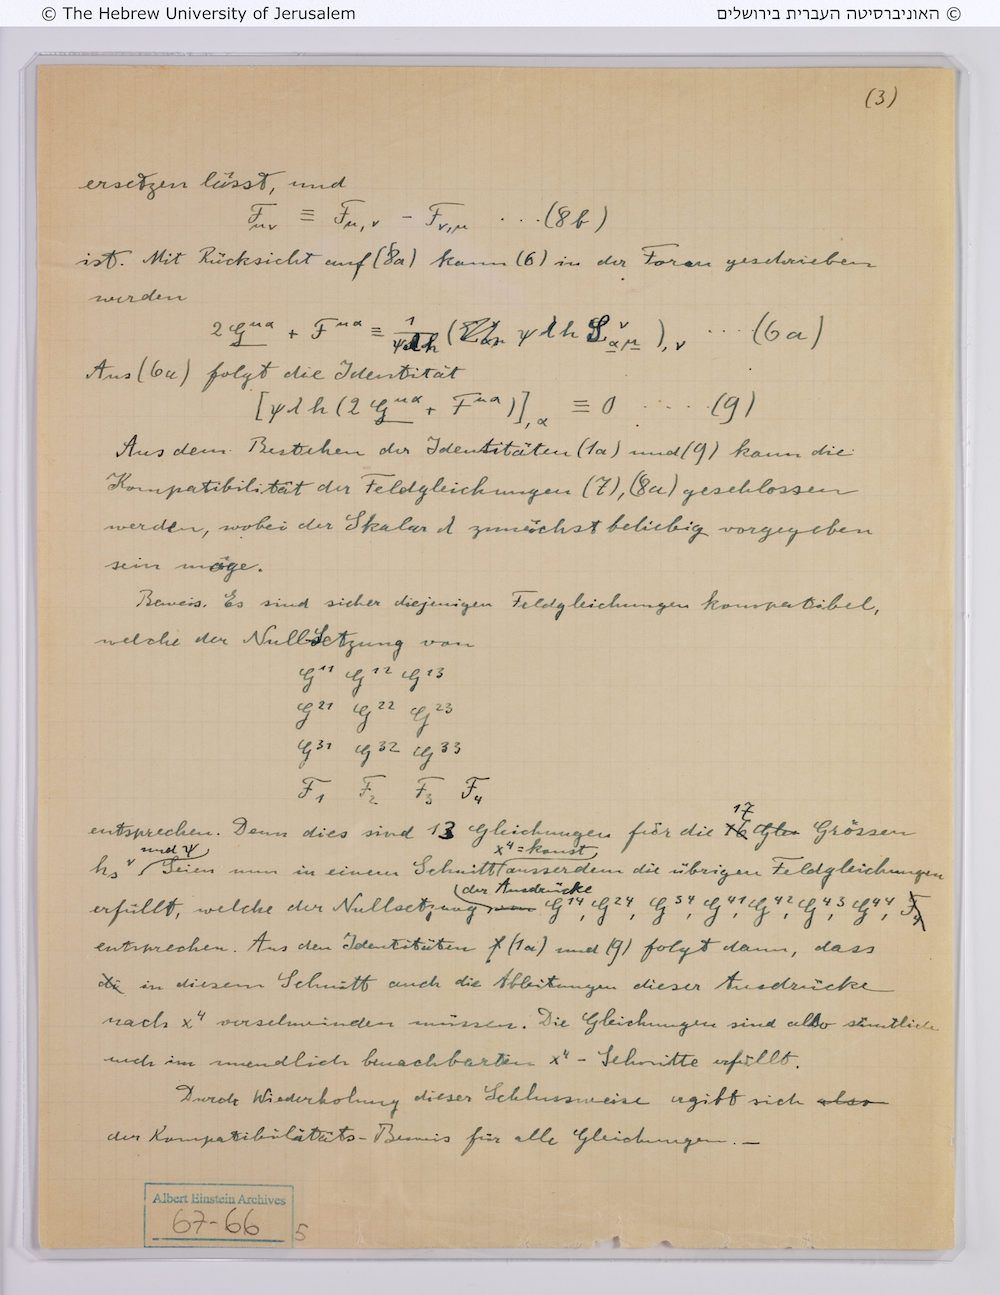 © The Hebrew University of Jerusalem
© האוניברסיטה העברית בירושלים
(3)
ersetzen lässt, und
F_μν ≡ F_μ,ν - F_ν,μ ...(8b)
ist. Mit Rücksicht auf (8a) kann (6) in der Form geschrieben
werden
2 G^μα + F^μα ≡ 1/ψλh ( ψ λ h S^ν_αμ ),ν ....(6a)
Aus (6a) folgt die Identität
[ψλh (2 G^μα + F^μα)],α ≡ 0 ....(9)
Aus dem Bestehen der Identitäten (1a) und (9) kann die
Kompatibilität der Feldgleichungen (7), (8a) geschlossen
werden, wobei der Skalar λ zunächst beliebig vorgegeben
sein möge.
Beweis. Es sind sicher diejenigen Feldgleichungen kompatibel,
welche der Nullsetzung von
G^11 G^12 G^13
G^21 G^22 G^23
G^31 G^32 G^33
F_1 F_2 F_3 F_4
entsprechen. Denn dies sind 13 Gleichungen für die 17 Grössen
h_s^ν und ψ. Seien nun in einem Schnitt x^4 = konst ausserdem die übrigen Feldgleichungen
erfüllt, welche der Nullsetzung der Ausdrücke G^14, G^24, G^34, G^41, G^42, G^43, G^44, F_4
entsprechen. Aus den Identitäten (1a) und (9) folgt dann, dass
in diesem Schnitt auch die Ableitungen dieser Ausdrücke
nach x^4 verschwinden müssen. Die Gleichungen sind also sämtlich
auch im unendlich benachbarten x^4 - Schnitte erfüllt.
Durch Wiederholung dieser Schlussweise ergibt sich also
der Kompatibilitäts-Beweis für alle Gleichungen. —
Albert Einstein Archives
67-66
5